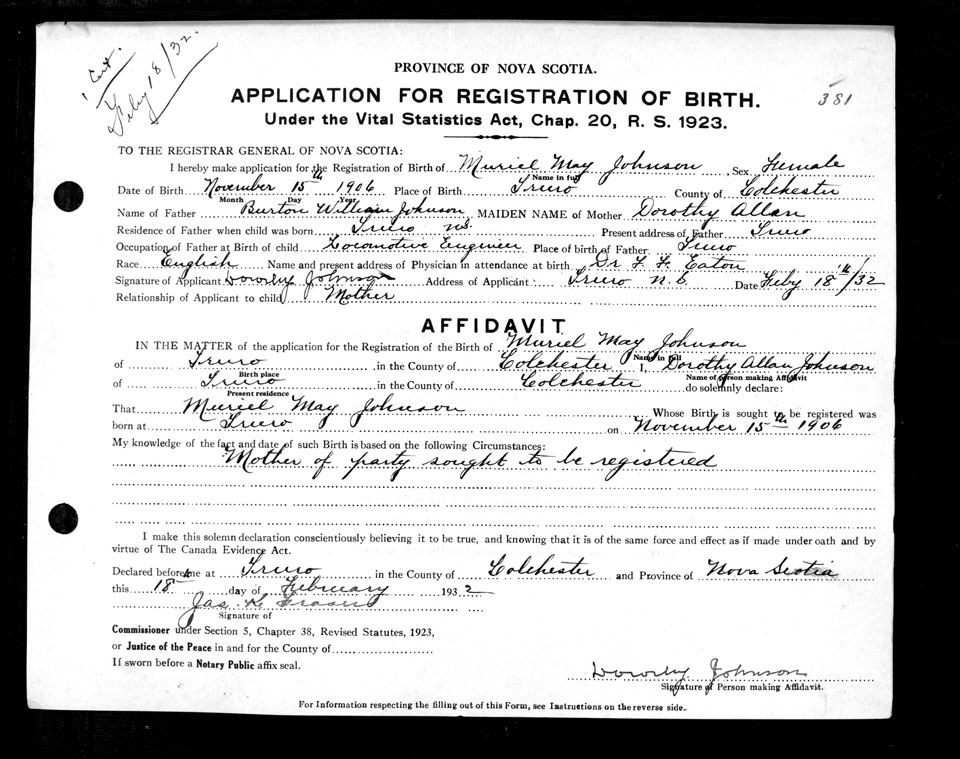 1 Cert.
Feby 18/32.
PROVINCE OF NOVA SCOTIA.
APPLICATION FOR REGISTRATION OF BIRTH.
381
Under the Vital Statistics Act, Chap. 20, R. S. 1923.
TO THE REGISTRAR GENERAL OF NOVA SCOTIA:
I hereby make application for the Registration of Birth of Muriel May Johnson Sex Female
Name in full
Date of Birth November 15th 1906 Place of Birth Truro County of Colchester
Month Day Year
Name of Father Burton William Johnson, MAIDEN NAME of Mother Dorothy Allan
Residence of Father when child was born Truro N.S. Present address of Father Truro
Occupation of Father at Birth of child Locomotive Engineer Place of birth of Father Truro
Race English Name and present address of Physician in attendance at birth Dr F. F. Eaton
Signature of Applicant Dorothy Johnson Address of Applicant Truro N.S. Date Feby 18th/32
Relationship of Applicant to child Mother
AFFIDAVIT
IN THE MATTER of the application for the Registration of the Birth of Muriel May Johnson
Name in full
of Truro in the County of Colchester I, Dorothy Allan Johnson
Birth place Name of Person making Affidavit
of Truro in the County of Colchester do solemnly declare:
Present residence
That Muriel May Johnson Whose Birth is sought to be registered was
born at Truro on November 15th 1906
My knowledge of the fact and date of such Birth is based on the following Circumstances:
Mother of party sought to be registered
I make this solemn declaration conscientiously believing it to be true, and knowing that it is of the same force and effect as if made under oath and by
virtue of The Canada Evidence Act.
Declared before me at Truro in the County of Colchester and Province of Nova Scotia
this 18th day of February 1932
Jas. Fraser
Signature of
Commissioner under Section 5, Chapter 38, Revised Statutes, 1923,
or Justice of the Peace in and for the County of
If sworn before a Notary Public affix seal.
Dorothy Johnson
Signature of Person making Affidavit.
For Information respecting the filling out of this Form, see Instructions on the reverse side.